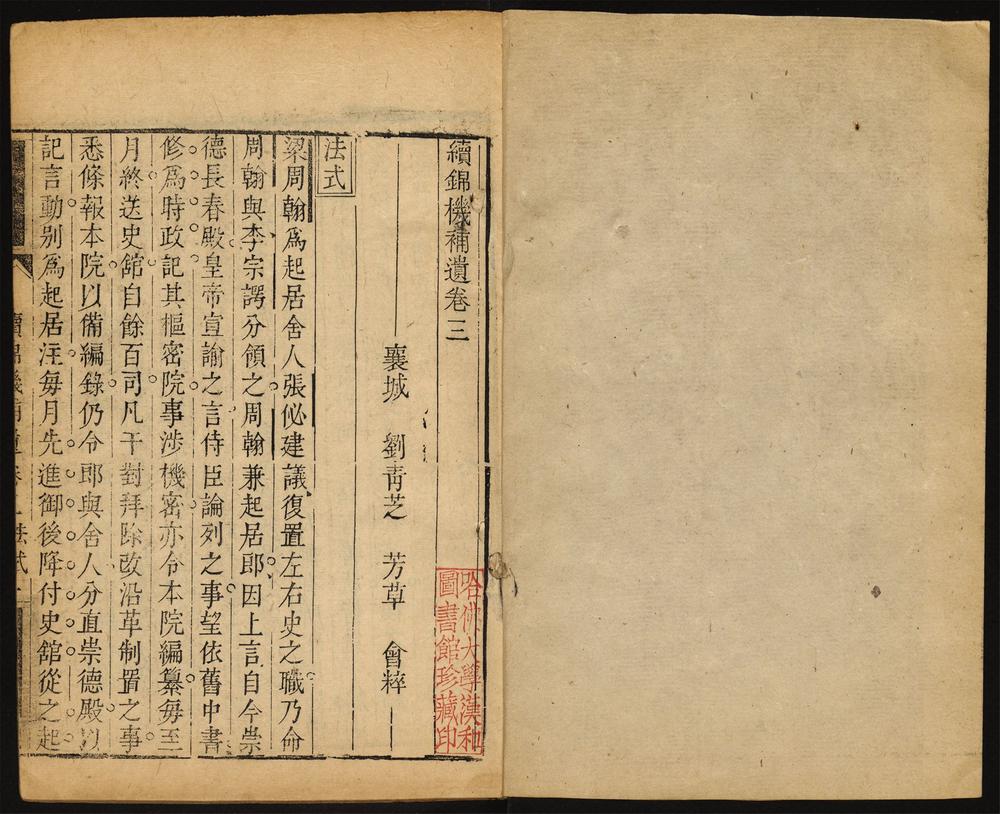 續錦機補遺卷三
哈佛大學漢和
圖書館珍藏印
襄城 劉青芝 芳草 會粹
法式
梁周翰爲起居舍人張佖建議復置左右史之職乃命
周翰與李宗諤分領之周翰兼起居郎因上言自今崇
德長春殿皇帝宣諭之言侍臣論列之事望依舊中書
修爲時政記其樞密院事涉機密亦令本院編纂每至
月終送史舘自餘百司凡干對拜除改沿革制置之事
悉條報本院以備編錄仍令郎與舍人分直崇德殿以
記言動别爲起居注每月先進御後降付史舘從之起
續錦機補遺 卷 法式